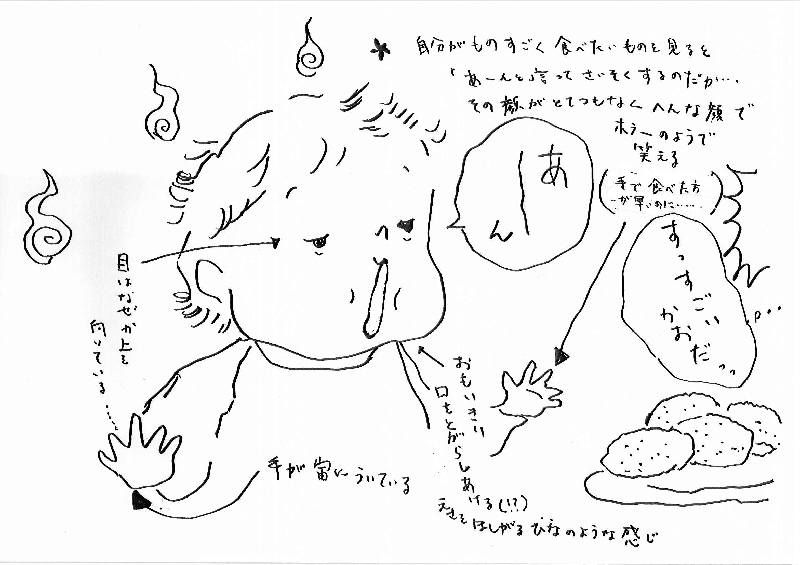 * 自分がものすごく食べたいものを見ると
「あーんと言ってさいそくするのだが…
その顔がとてつもなくへんな顔で
ホラーのようで
笑える
(手で食べた方
が早いのに……)
あーん
すっすごい
かおだ…
目はなぜか上を
向いている……
手が宙にういている
おもいきり
口をとがらしあ
ける(!?)
えさをほしがるひなのような感じ